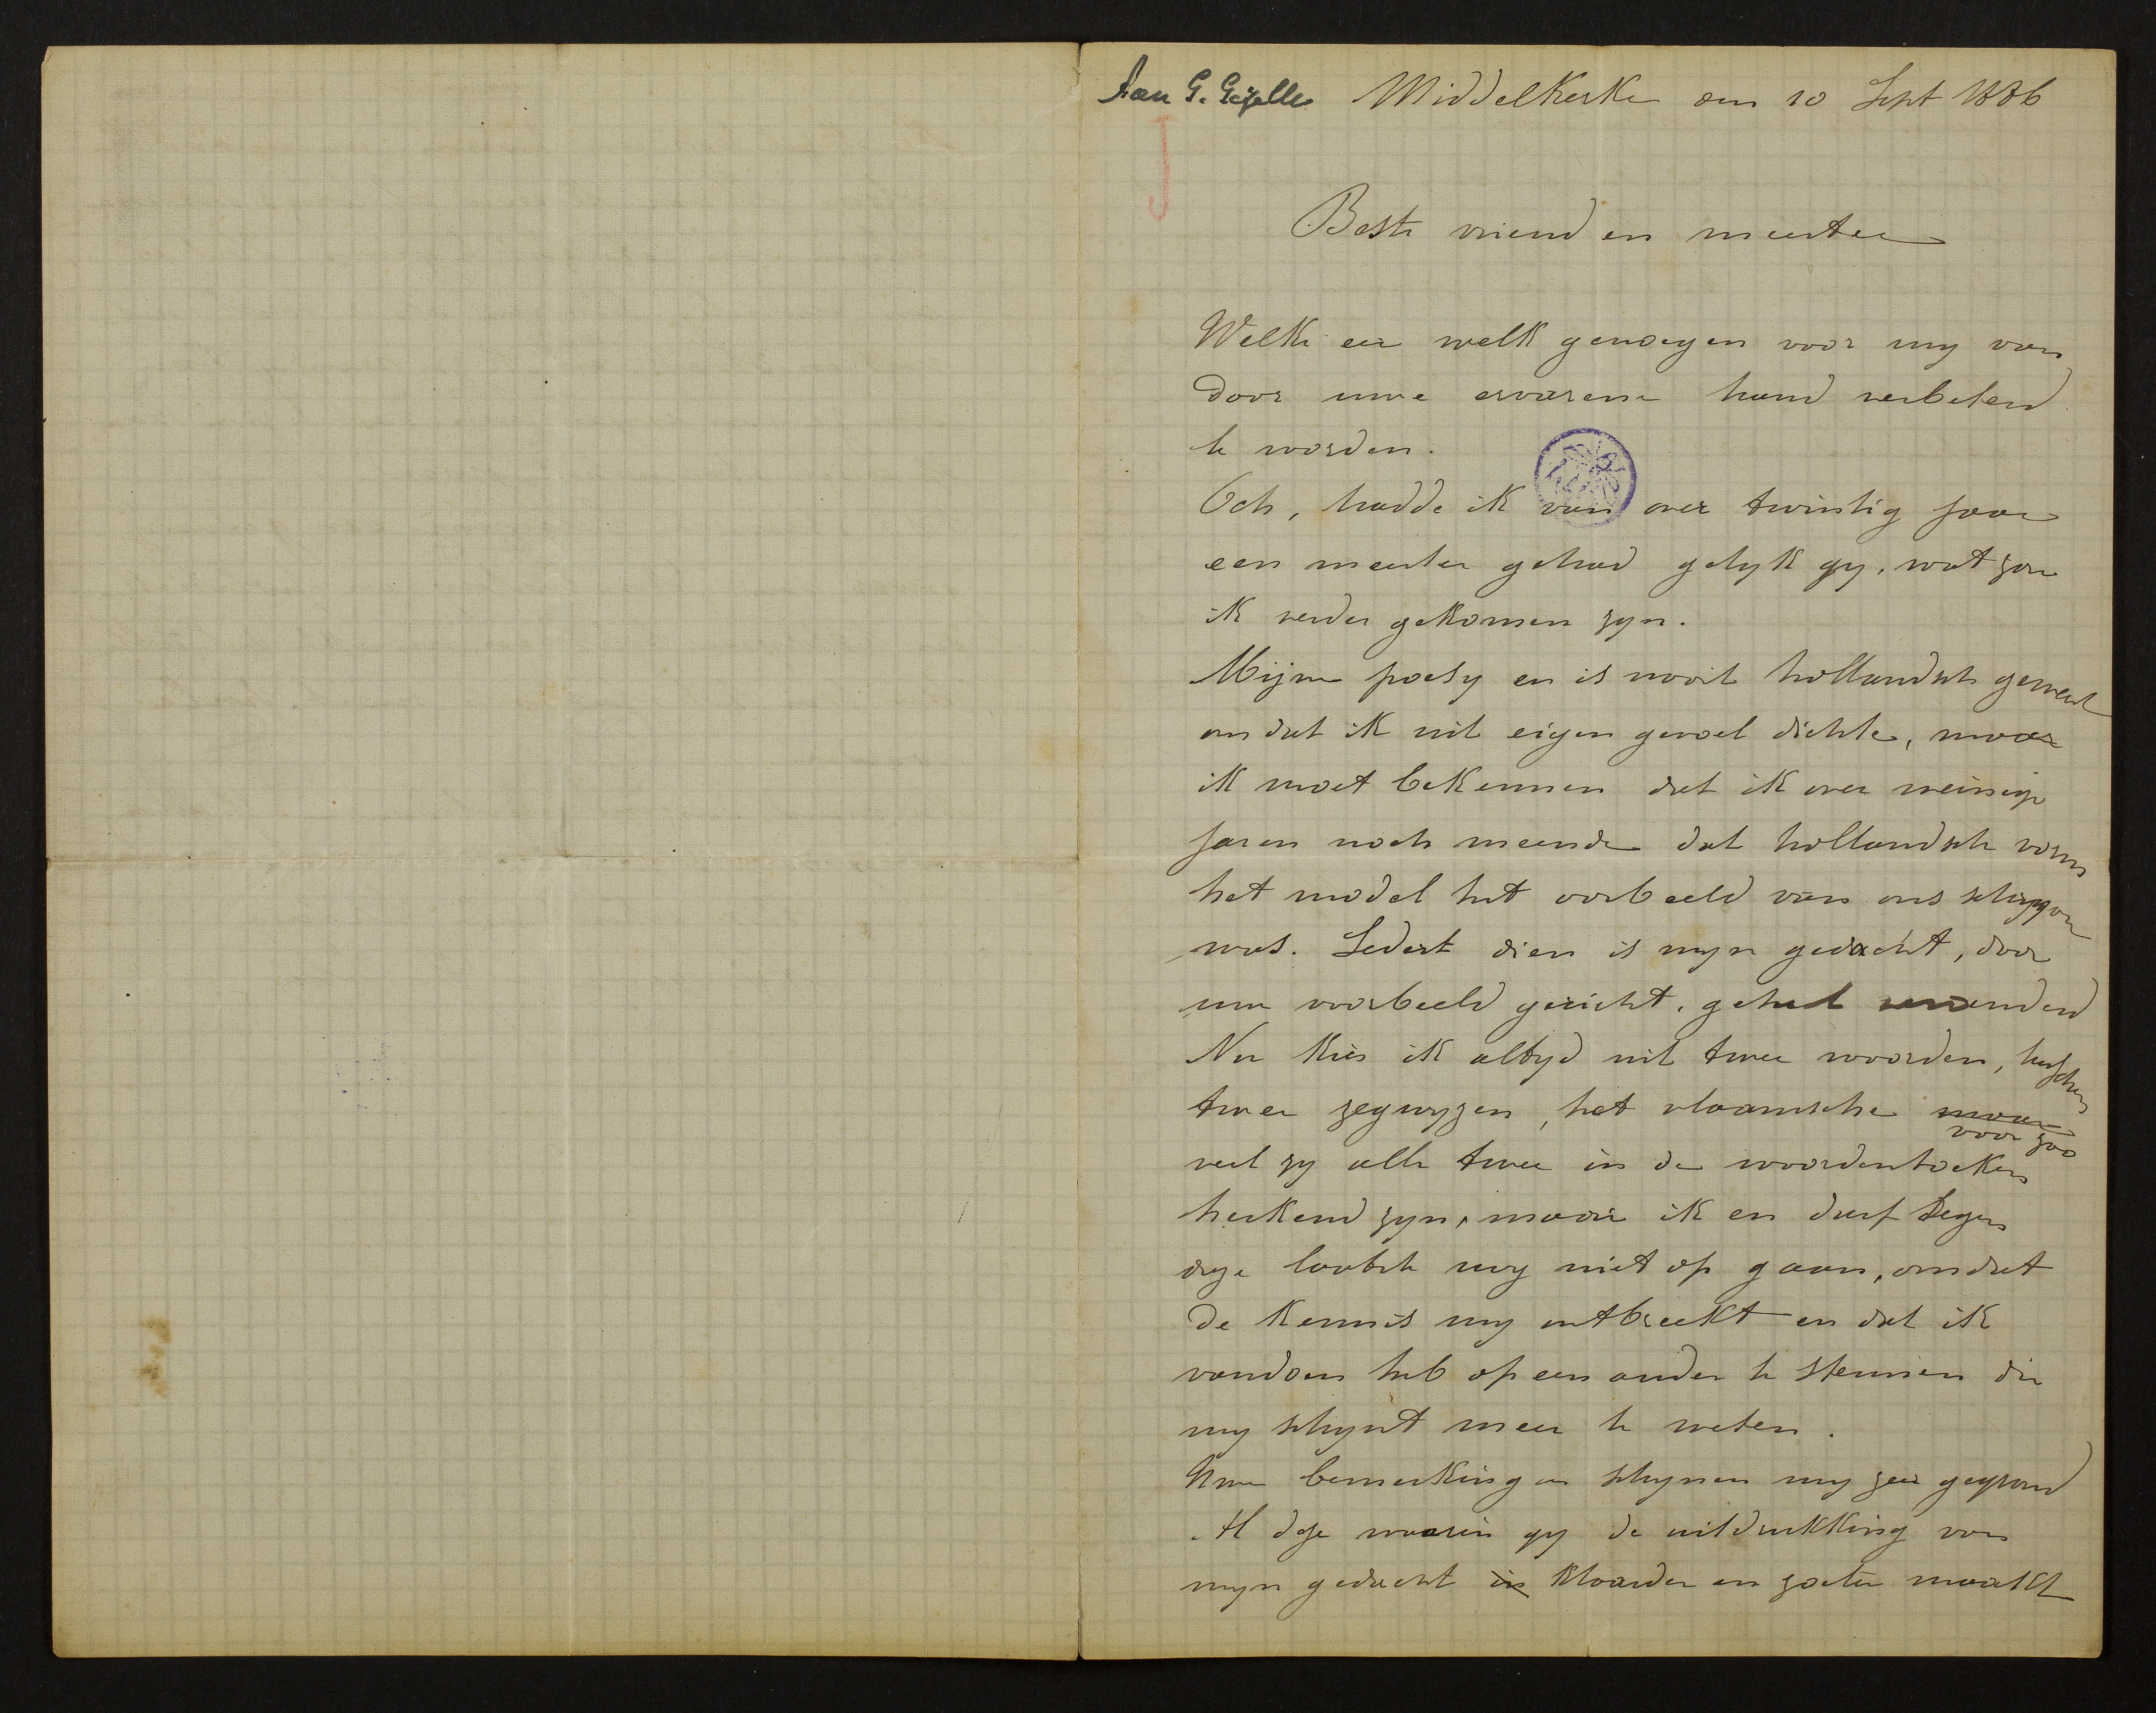 Aan G. Gezelle Middelkerke den 10 Sept 1886
Beste vriend en meester
Welke eer welk genoegen voor my van
door uwe ervarene hand verbeterd
te worden.
Och, hadde ik van over twintig jaar
een meester gehad gelyk gy, wat zou
ik verder gekomen zyn.
Mijne poesy en is nooit hollandsch geweest
om dat ik uit eigen gevoel dichte, maar
ik moet bekennen dat ik over weinige
jaren noch meende dat hollandsche vorm
het model het voorbeeld van ons
was. Sedert dien is myn gedacht, door
uw voorbeeld gericht, geheel veranderd
Nu kies ik altyd uit twee woorden, tusschen
twee zegwyzen, het vlaamsche maar
voor zoo
veel zy alle twee in de woordenboeken
herkend zyn, maar ik en durf tegen
deze laatste nog niet op gaan, omdat
de kennis my ontbreekt en dat ik
vandoen heb op een ander te steunen die
my schynt meer te weten.
Uwe bemerkingen schynen my zeer gegrond
Al deze waarin gy de uitdrukking van
myn gedacht in klaarder en zoeter maakt